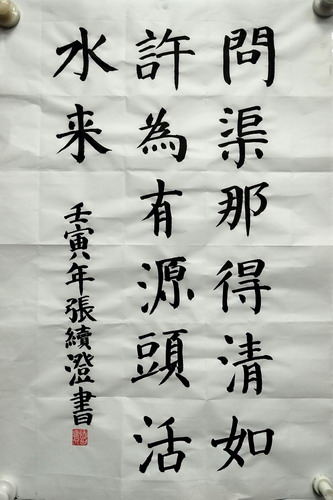 問渠那得清如
許為有源頭活
水来
壬寅年張續澄書